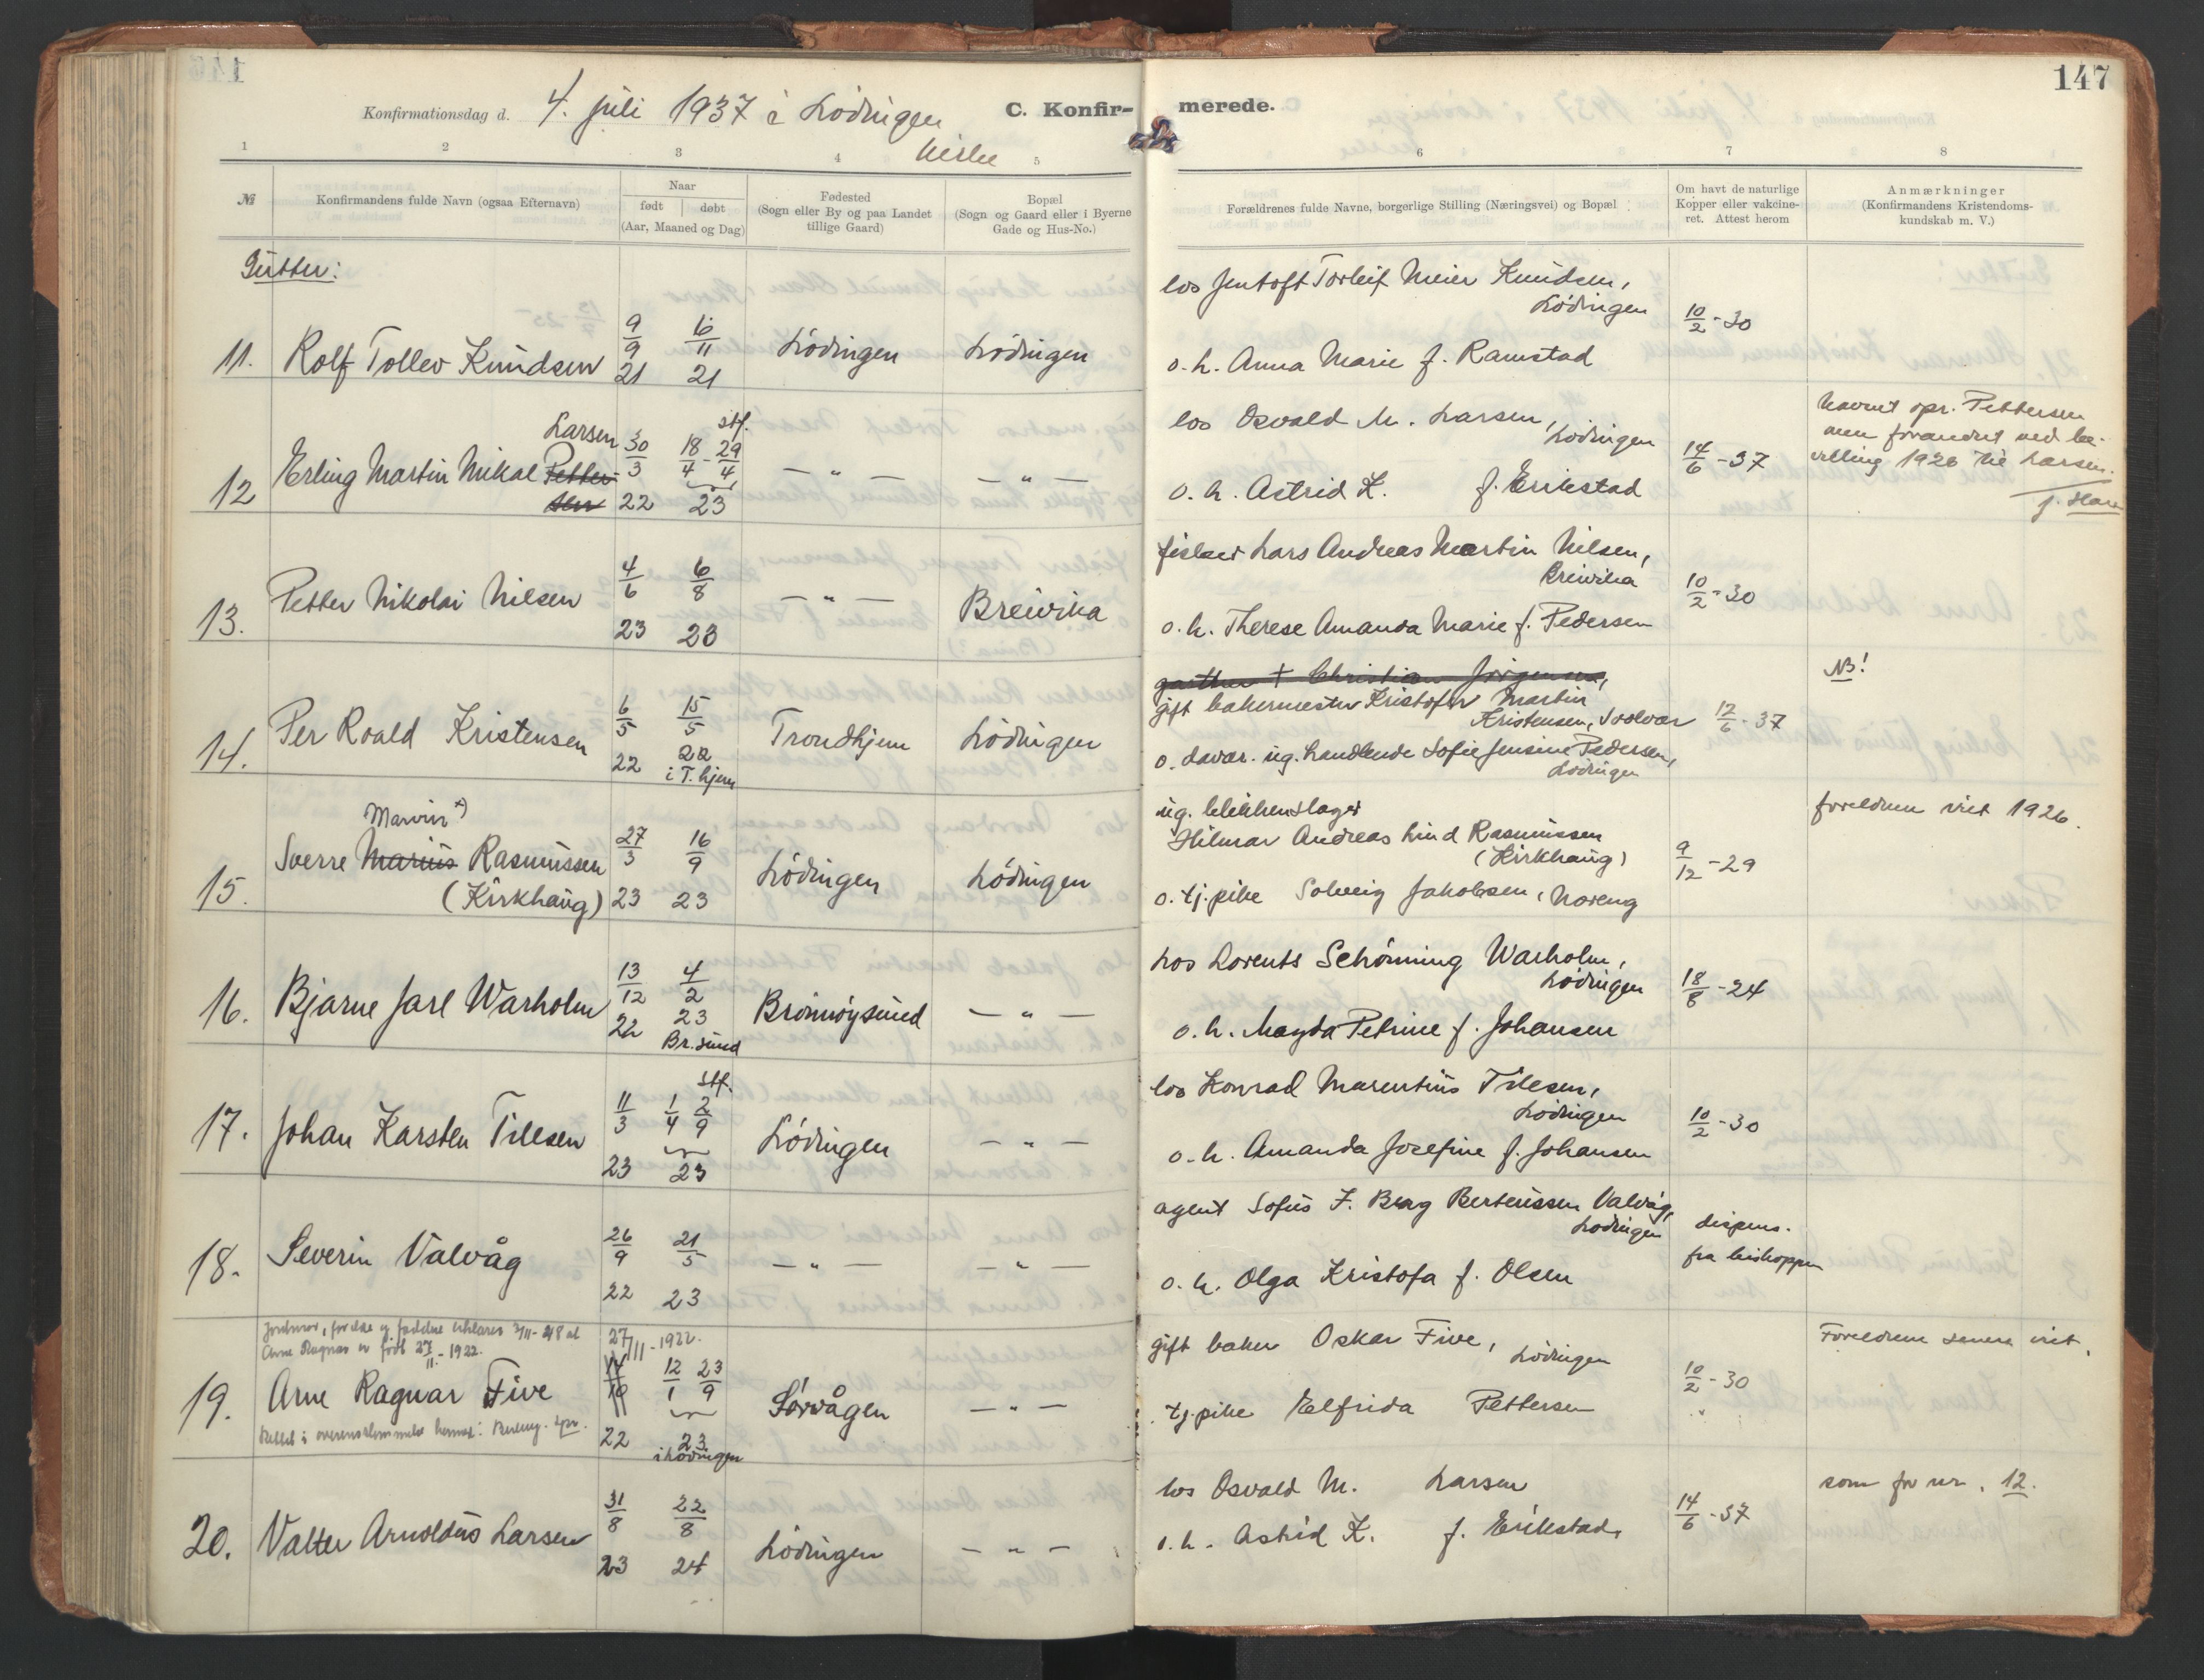 147
Konfirmationsdag d. 4. juli 1937 i Lödingen kirke
C. Konfirmerede.
1 2 3 4 5 6 7 8
№
Konfirmandens fulde Navn (ogsaa Efternavn)
Naar
født | døbt
(Aar, Maaned og Dag)
Fødested
(Sogn eller By og paa Landet
tillige Gaard)
Bopæl
(Sogn og Gaard eller i Byerne
Gade og Hus-No.)
Forældrenes fulde Navne, borgerlige Stilling (Næringsvei) og Bopæl
Om havt de naturlige
Kopper eller vakcine-
ret. Attest herom
Anmærkninger
(Konfirmandens Kristendoms-
kundskab m. V.)
Gutter:
11. Rolf Tollev Knudsen 9/9 21 16/11 21 Lödingen Lödingen
los Jentoft Torleif Meier Knudsen,
Lödingen
o. h. Anna Marie f. Ramstad
10/2-30
12 Erling Martin Mikal Petter-
sen Larsen 30/3 22 stf. 18/4 - 29/4 23 — " — — " —
los Osvald M. Larsen,
Lödingen
o. h. Astrid K. f. Erikstad
14/6-37
Navnet opr. Pettersen
men forandret ved be-
villing 1926 til Larsen.
13. Petter Nikolai Nilsen 4/6 23 6/8 23 — " — Breivika
fisker Lars Andreas Martin Nilsen,
Breivika
o. h. Therese Amanda Marie f. Pedersen
10/2-30
14. Per Roald Kristensen 6/5 22 15/5 22 i T.hjem Trondhjem Lödingen
gartner + Christian Jörgensen,
gift bakermester Kristofer Martin
Kristensen, Svolvær
o. davær. ug. handlende Sofie Jensine Pedersen,
Lödingen
12/6-37
NB!
15. Sverre Marius Marvin x) Rasmussen
(Kirkhaug) 27/3 23 16/9 23 Lödingen Lödingen
ug. blikkenslager
Hilmar Andreas Lind Rasmussen
(Kirkhaug)
o. tj.pike Solveig Jakobsen, Noreng
9/12-29
foreldrene viet 1926.
16. Bjarne Jarl Warholm 13/12 22 4/2 23 Br.sund Brönnöysund — " —
los Lorents Schönning Warholm,
Lödingen
o. h. Magda Petrine f. Johansen
18/8-24
17. Johan Karsten Tillesen 11/3 23 stf. 1/4 2/9 23 Lödingen — " —
los Konrad Marentius Tilesen,
Lödingen
o. h. Amanda Josefine f. Johansen
10/2-30
18. Severin Valvåg 26/9 22 21/5 23 — " — — " —
agent Sofus J. Berg Berteussen Valvåg,
Lödingen
o. h. Olga Kristofa f. Olsen
dispens.
fra biskoppen
Arne Ragnar er født 27/11-1922.
19. Arne Ragnar Five 27/11-1922. 22 12/1 23/9 23 i Lödingen Sörvågen — " —
gift baker Oskar Five,
Lödingen
tj.pike Elfrida Pettersen
10/2-30
Foreldrene senere viet.
20. Valter Arnoldus Larsen 31/8 23 22/8 24 Lödingen — " —
los Osvald M. Larsen
o. h. Astrid K. f. Erikstad,
14/6-37
som for nr. 12.